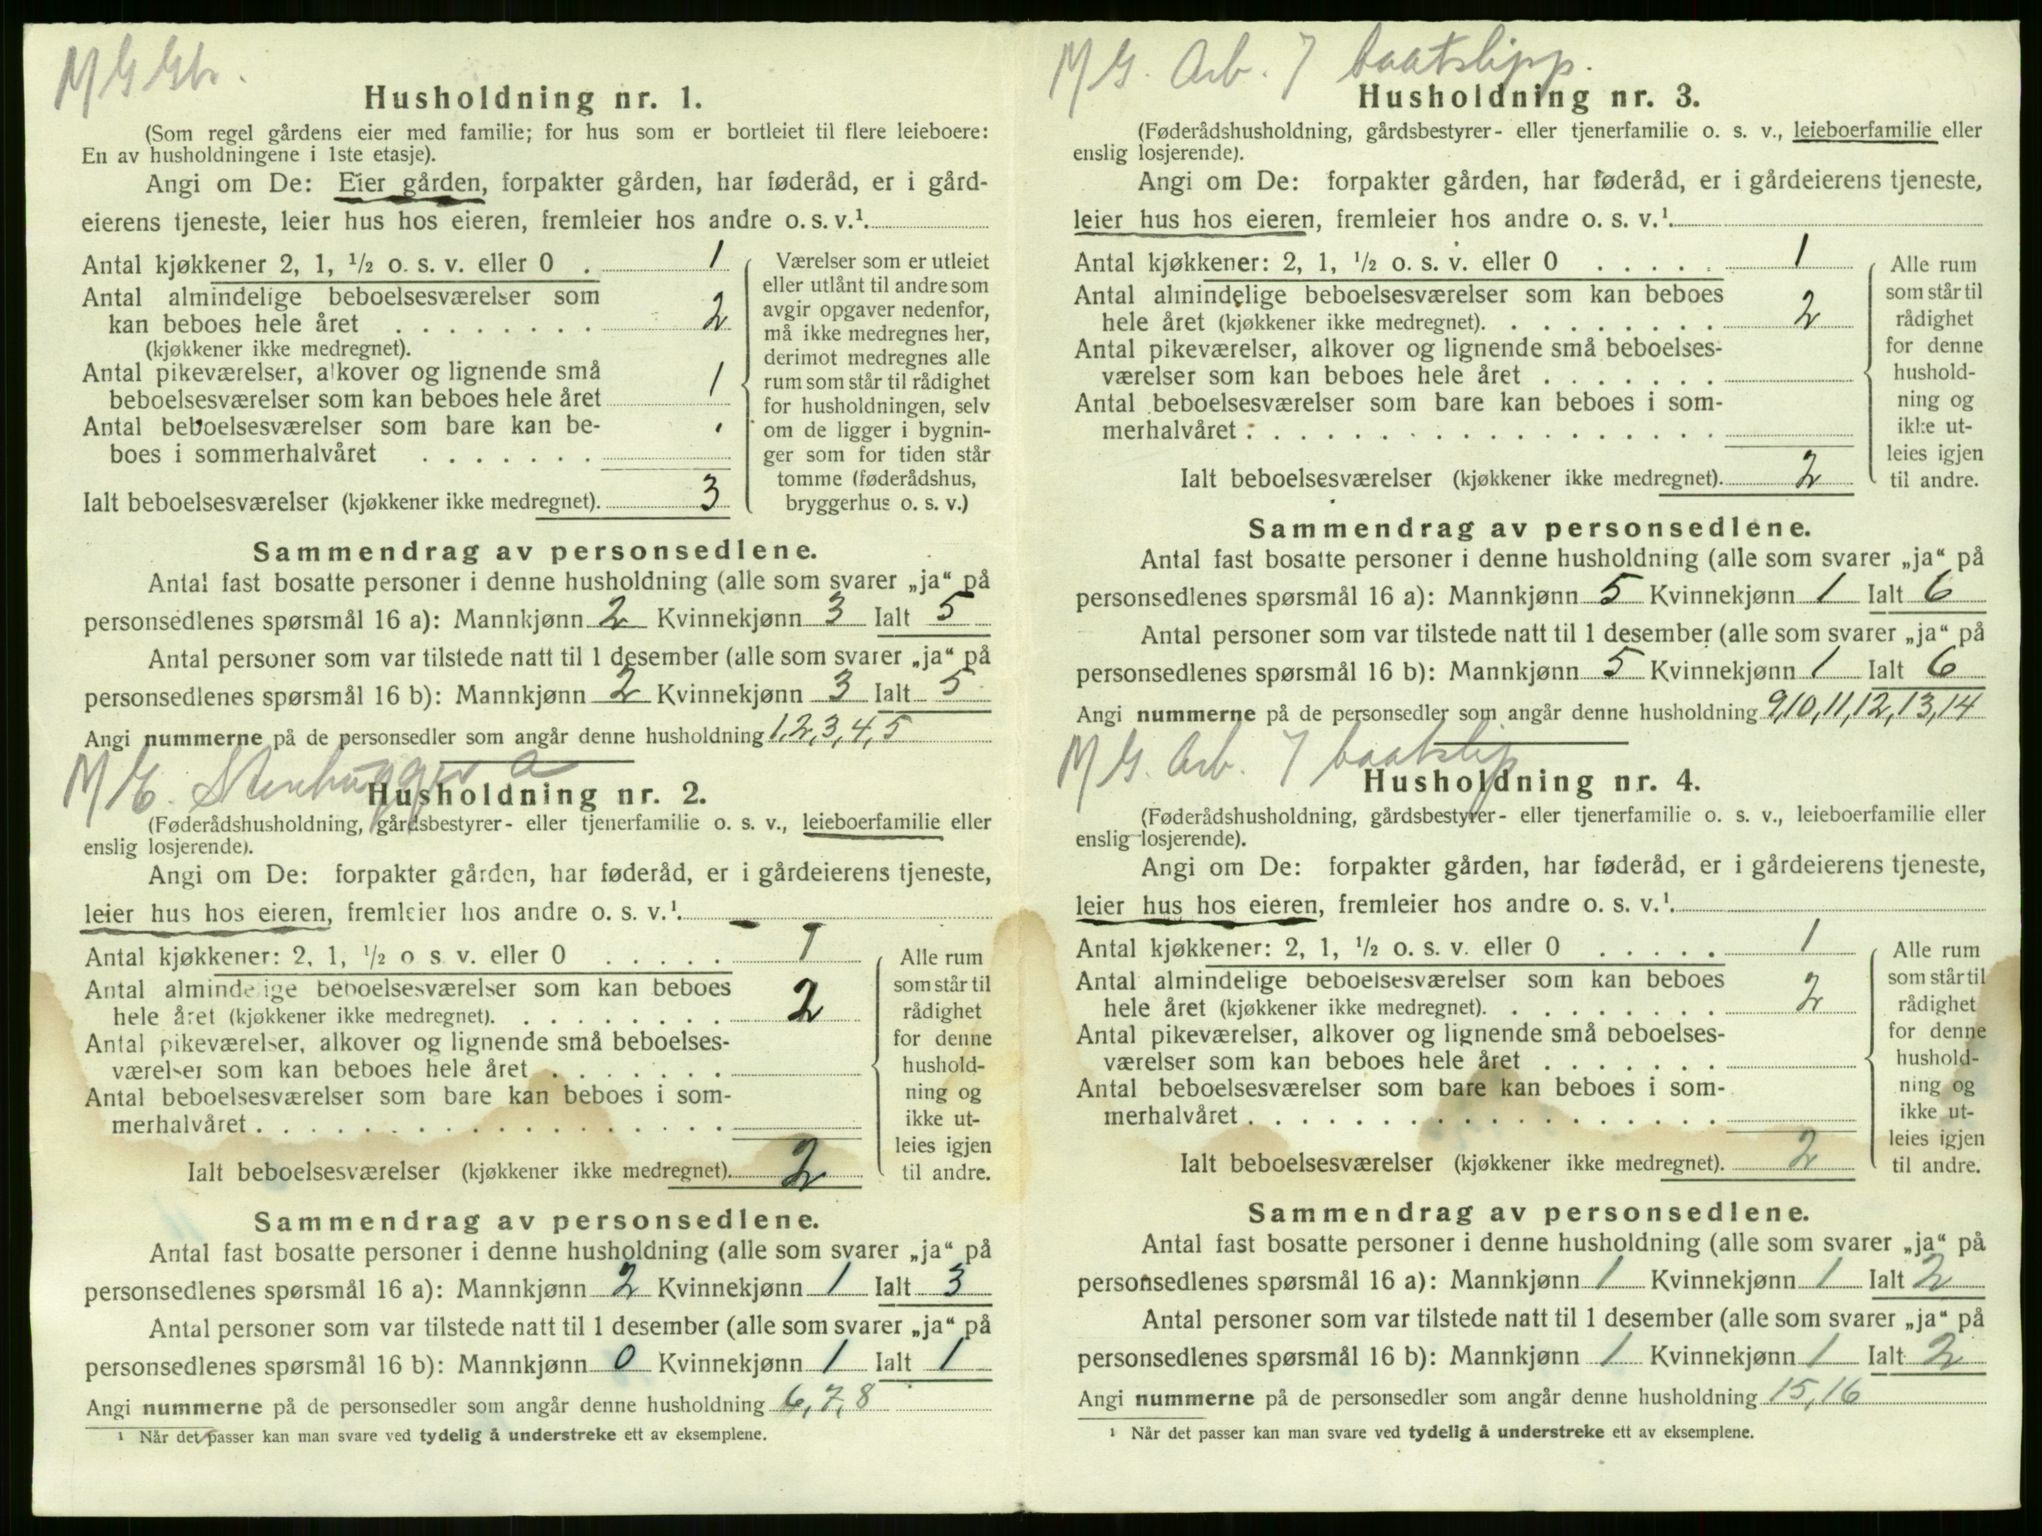 M G Gbr.
Husholdning nr. 1.
(Som regel gårdens eier med familie; for hus som er bortleiet til flere leieboere:
En av husholdningene i 1ste etasje).
Angi om De: Eier gården, forpakter gården, har føderåd, er i gård-
eierens tjeneste, leier hus hos eieren, fremleier hos andre o. s. v.¹.
Antal kjøkkener 2, 1, ½ o. s. v. eller 0 . 1
Antal almindelige beboelsesværelser som
kan beboes hele året . . . . . . . . 2
(kjøkkener ikke medregnet).
Antal pikeværelser, alkover og lignende små
beboelsesværelser som kan beboes hele året 1
Antal beboelsesværelser som bare kan be-
boes i sommerhalvåret . . . . . . .
Ialt beboelsesværelser (kjøkkener ikke medregnet). 3
Værelser som er utleiet
eller utlånt til andre som
avgir opgaver nedenfor,
må ikke medregnes her,
derimot medregnes alle
rum som står til rådighet
for husholdningen, selv
om de ligger i bygnin-
ger som for tiden står
tomme (føderådshus,
bryggerhus o. s. v.)
Sammendrag av personsedlene.
Antal fast bosatte personer i denne husholdning (alle som svarer „ja“ på
personsedlenes spørsmål 16 a): Mannkjønn 2 Kvinnekjønn 3 Ialt 5
Antal personer som var tilstede natt til 1 desember (alle som svarer „ja“ på
personsedlenes spørsmål 16 b): Mannkjønn 2 Kvinnekjønn 3 Ialt 5
Angi nummerne på de personsedler som angår denne husholdning 1,2,3,4,5
M G. Stenhugger a
Husholdning nr. 2.
(Føderådshusholdning, gårdsbestyrer- eller tjenerfamilie o. s. v., leieboerfamilie eller
enslig losjerende).
Angi om De: forpakter gården, har føderåd, er i gårdeierens tjeneste,
leier hus hos eieren, fremleier hos andre o. s. v.¹.
Antal kjøkkener: 2, 1, ½ o s. v. eller 0 . . . . . 1
Antal almindelige beboelsesværelser som kan beboes
hele året (kjøkkener ikke medregnet). . . . . . . . . 2
Antal pikeværelser, alkover og lignende små beboelses-
værelser som kan beboes hele året . . . . . . .
Antal beboelsesværelser som bare kan beboes i som-
merhalvåret . . . . . . . . . . . . . . . . . .
Ialt beboelsesværelser (kjøkkener ikke medregnet). 2
Alle rum
som står til
rådighet
for denne
hushold-
ning og
ikke ut-
leies igjen
til andre.
Sammendrag av personsedlene.
Antal fast bosatte personer i denne husholdning (alle som svarer „ja“ på
personsedlenes spørsmål 16 a): Mannkjønn 2 Kvinnekjønn 1 Ialt 3
Antal personer som var tilstede natt til 1 desember (alle som svarer „ja“ på
personsedlenes spørsmål 16 b): Mannkjønn 0 Kvinnekjønn 1 Ialt 1
Angi nummerne på de personsedler som angår denne husholdning 6,7,8
¹ Når det passer kan man svare ved tydelig å understreke ett av eksemplene.
M G. Arb. 7 baatslipp.
Husholdning nr. 3.
(Føderådshusholdning, gårdsbestyrer- eller tjenerfamilie o. s. v., leieboerfamilie eller
enslig losjerende).
Angi om De: forpakter gården, har føderåd, er i gårdeierens tjeneste,
leier hus hos eieren, fremleier hos andre o. s. v.¹.
Antal kjøkkener: 2, 1, ½ o. s. v. eller 0 . . . . . 1
Antal almindelige beboelsesværelser som kan beboes
hele året (kjøkkener ikke medregnet). . . . . . . . . 2
Antal pikeværelser, alkover og lignende små beboelses-
værelser som kan beboes hele året . . . . . . .
Antal beboelsesværelser som bare kan beboes i som-
merhalvåret . . . . . . . . . . . . . . . . . .
Ialt beboelsesværelser (kjøkkener ikke medregnet). 2
Alle rum
som står til
rådighet
for denne
hushold-
ning og
ikke ut-
leies igjen
til andre.
Sammendrag av personsedlene.
Antal fast bosatte personer i denne husholdning (alle som svarer „ja“ på
personsedlenes spørsmål 16 a): Mannkjønn 5 Kvinnekjønn 1 Ialt 6
Antal personer som var tilstede natt til 1 desember (alle som svarer „ja“ på
personsedlenes spørsmål 16 b): Mannkjønn 5 Kvinnekjønn 1 Ialt 6
Angi nummerne på de personsedler som angår denne husholdning 9,10,11,12,13,14
M G. Arb. 7 baatslip
Husholdning nr. 4.
(Føderådshusholdning, gårdsbestyrer- eller tjenerfamilie o. s. v., leieboerfamilie eller
enslig losjerende).
Angi om De: forpakter gården, har føderåd, er i gårdeierens tjeneste,
leier hus hos eieren, fremleier hos andre o. s. v.¹.
Antal kjøkkener: 2, 1, ½ o. s. v. eller 0 . . . . . 1
Antal almindelige beboelsesværelser som kan beboes
hele året (kjøkkener ikke medregnet). . . . . . . . . 2
Antal pikeværelser, alkover og lignende små beboelses-
værelser som kan beboes hele året . . . . . . .
Antal beboelsesværelser som bare kan beboes i som-
merhalvåret . . . . . . . . . . . . . . . . . .
Ialt beboelsesværelser (kjøkkener ikke medregnet). 2
Alle rum
som står til
rådighet
for denne
hushold-
ning og
ikke ut-
leies igjen
til andre.
Sammendrag av personsedlene.
Antal fast bosatte personer i denne husholdning (alle som svarer „ja“ på
personsedlenes spørsmål 16 a): Mannkjønn 1 Kvinnekjønn 1 Ialt 2
Antal personer som var tilstede natt til 1 desember (alle som svarer „ja“ på
personsedlenes spørsmål 16 b): Mannkjønn 1 Kvinnekjønn 1 Ialt 2
Angi nummerne på de personsedler som angår denne husholdning 15,16
¹ Når det passer kan man svare ved tydelig å understreke ett av eksemplene.